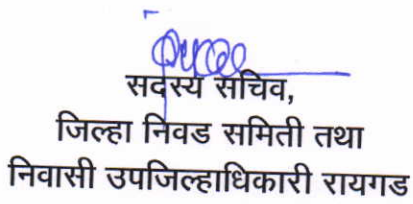 सदस्य सचिव,
जिल्हा निवड समिती तथा
निवासी उपजिल्हाधिकारी रायगड